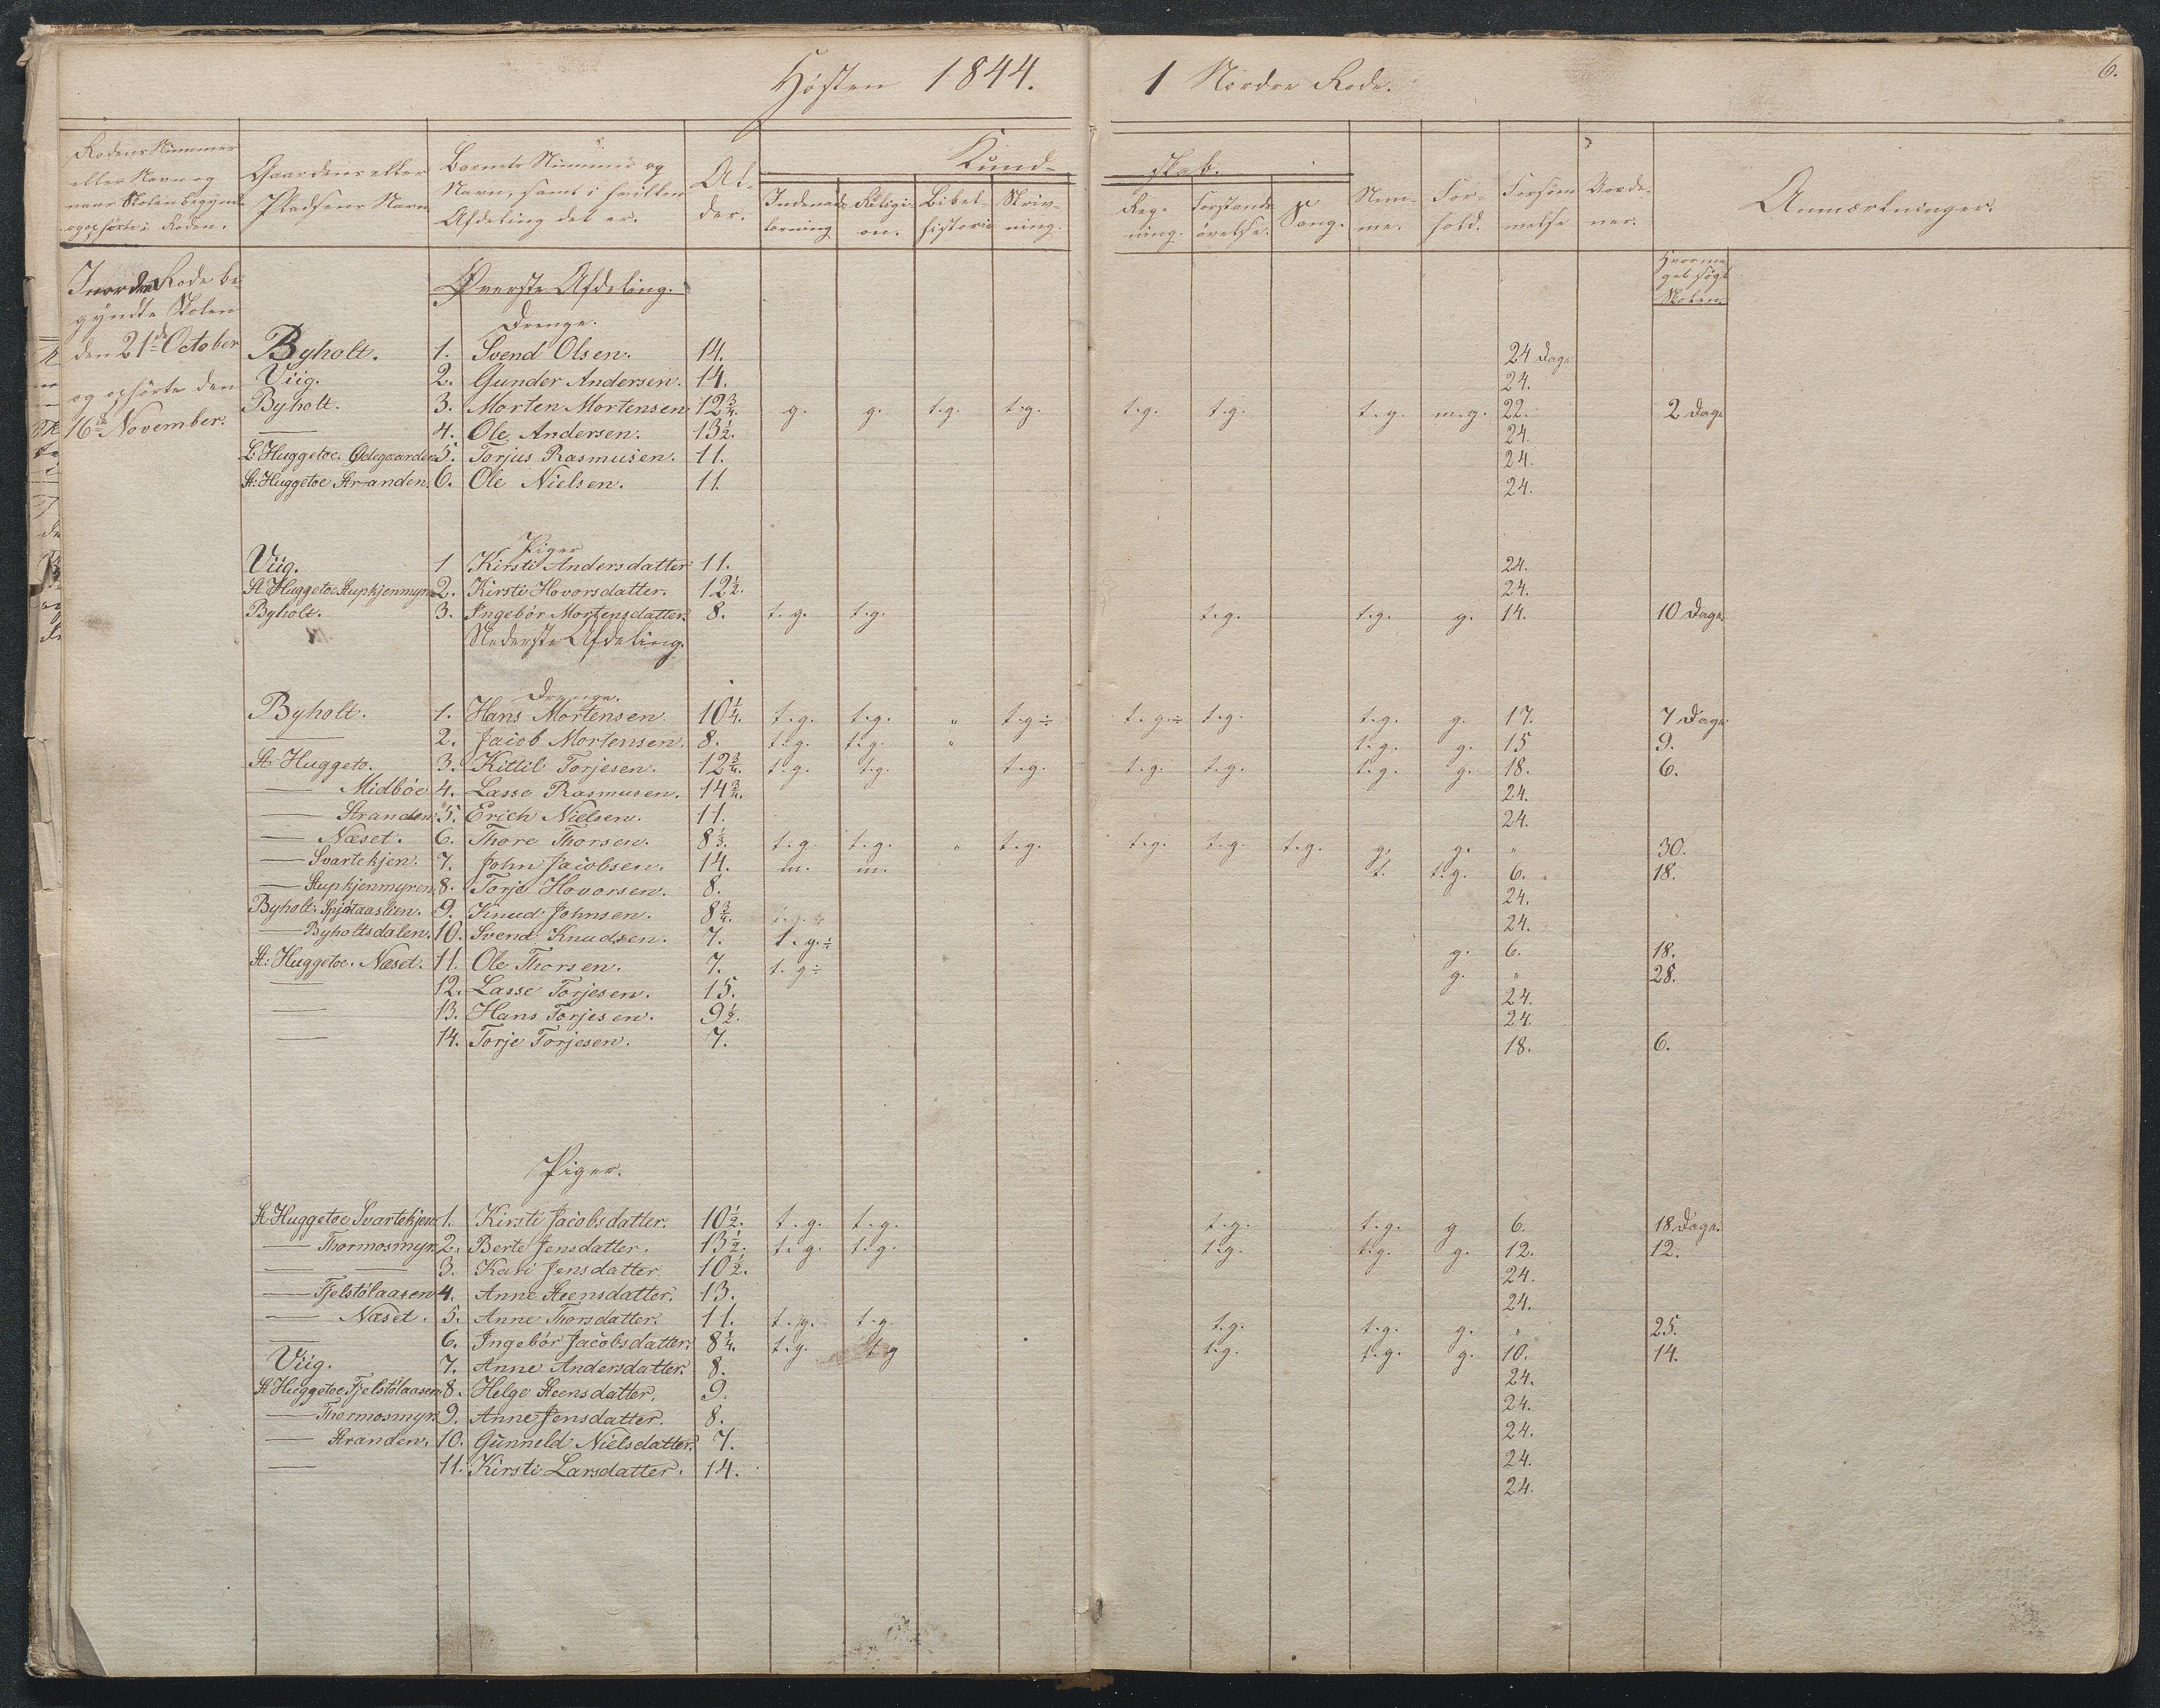 Høsten 1844. 1 Nordre Rode. 6.
Rodens Nummer eller Navn og naar Skolen begyndte og ophørte i Roden. | Gaardens eller Pladsens Navn | Barnets Nummer og Navn, samt i hvilken Afdeling det er. | Alder. | Kundskab. | Indenadslæsning | Religion. | Bibelhistorie | Skrivning. | Regning. | Forstandsøvelse. | Sang. | Nemme. | Forhold. | Forsømmelse | Anmærkninger.
I nordre Rode begyndte Skolen
den 21de October
og ophørte den
16de November.
Hvormeget søgt Skolen.
Øverste Afdeling.
Drenge.
Byholt. 1. Svend Olsen. 14. 24 Dage
Viig. 2. Gunder Andersen. 14. 24.
Byholt. 3. Morten Mortensen 12 3/4. g. g. t.g. t.g. t.g. t.g. t.g. m.g. 22. 2 Dage
— 4. Ole Andersen. 13 1/2. 24.
L. Huggetoe, Ødegaarden 5. Torjus Rasmusen. 11. 24.
St: Huggetoe Stranden. 6. Ole Nielsen. 11. 24.
Piger
Viig. 1 Kirsti Andersdatter 11. 24.
St Huggetoe Stupkjenmyren 2. Kirsti Hovorsdatter. 12 1/2. 24.
Byholt. 3. Ingebør Mortensdatter. 8. t.g. t.g. t.g. t.g. g. 14. 10 Dage.
Nederste Afdeling.
Drenge.
Byholt. 1. Hans Mortensen 10 1/4. t.g. t.g. „ t.g÷ t.g.÷ t.g. t.g. g. 17. 7 Dage
— 2. Jacob Mortensen. 8. t.g. t.g. „ t.g. g. 15 9.
St Huggeto. 3. Kittil Torjesen. 12 3/4. t.g. t.g. t.g. t.g. t.g. t.g. g. 18. 6.
— Midbøe 4. Lasse Rasmusen. 14 3/4. 24.
— Stranden. 5. Erich Nielsen. 11. 24.
— Næset. 6. Thore Thorsen. 8 1/3. t.g. t.g. „ t.g. t.g. t.g. t.g. g. g. „ 30.
— Svartekjen. 7. John Jacobsen. 14. m. m. t. t.g. 6. 18.
— Stupkjenmyren 8. Torje Hovorsen. 8. 24.
Byholt. Spjótaaslien. 9. Knud Johnsen. 8 3/4. 24.
— Byholtsdalen. 10. Svend Knudsen. 7. t.g.÷ g. 6. 18.
St: Huggetoe. Næset. 11. Ole Thorsen. 7. t.g÷ g. „ 28.
— 12. Lasse Torjesen. 15. 24.
— 13. Hans Torjesen. 9 1/2. 24.
— 14. Torje Torjesen. 7. 18. 6.
Piger.
St Huggetoe Svartekjen 1. Kirsti Jacobsdatter. 10 1/2. t.g. t.g. t.g. t.g. g 6. 18 Dage.
— Thormosmyr. 2. Berte Jensdatter. 13 1/2. t.g. t.g. t.g. t.g. g. 12. 12.
— — 3. Kari Jensdatter 10 1/2. 24.
— Fjelstölaasen 4. Anne Steensdatter. 13. 24.
— Næset. 5. Anne Thorsdatter. 11. t.g. t.g. t.g. t.g. g. „ 25.
— 6. Ingebör Jacobsdatter. 8 1/4. t.g. t.g t.g. t.g. g. 10. 14.
Viig. 7. Anne Andersdatter. 8. 24.
St Huggetoe, Fjelstölaasen. 8. Helge Steensdatter. 9. 24.
— Thormosmyr. 9. Anne Jensdatter. 8. 24.
— Stranden. 10. Gunneld Nielsdatter. 7. 24.
— 11. Kirsti Larsdatter. 14. 24.